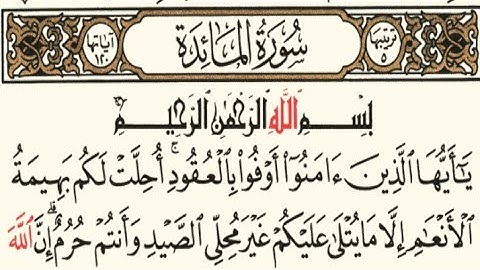 ترتيبها ٥ سُورَةُ المَائِدَةِ آياتها ١٢٠
بِسْمِ ٱللَّهِ ٱلرَّحْمَٰنِ ٱلرَّحِيمِ
يَٰٓأَيُّهَا ٱلَّذِينَ ءَامَنُوٓا۟ أَوْفُوا۟ بِٱلْعُقُودِ ۚ أُحِلَّتْ لَكُم بَهِيمَةُ
ٱلْأَنْعَٰمِ إِلَّا مَا يُتْلَىٰ عَلَيْكُمْ غَيْرَ مُحِلِّى ٱلصَّيْدِ وَأَنتُمْ حُرُمٌ ۗ إِنَّ ٱللَّهَ